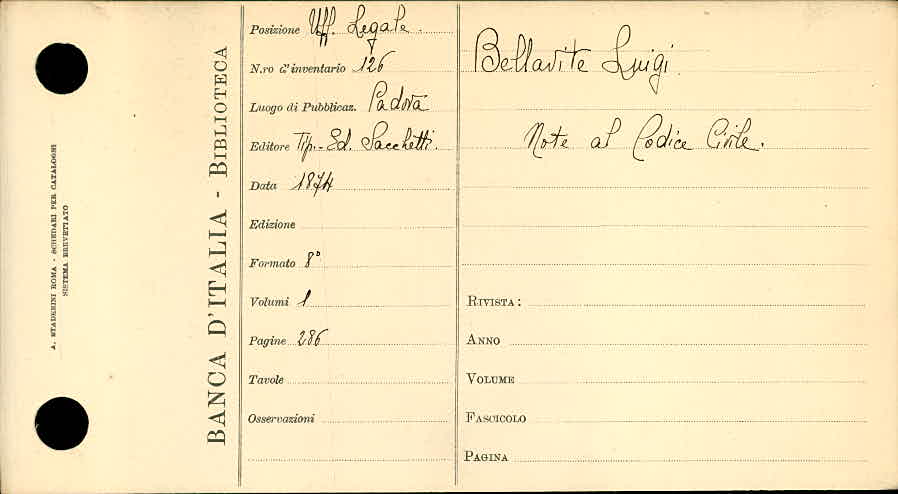 A. STADERINI ROMA - SCHEDARI PER CATALOGHI
SISTEMA BREVETTATO
BANCA D'ITALIA - BIBLIOTECA
Posizione Uff. Legale
N.ro d'inventario 126
Luogo di Pubblicaz. Padova
Editore Tip.-Ed. Sacchetti.
Data 1874
Edizione
Formato 8°
Volumi 1
Pagine 286
Tavole
Osservazioni
Bellavite Luigi
Note al Codice Civile.
RIVISTA:
ANNO
VOLUME
FASCICOLO
PAGINA